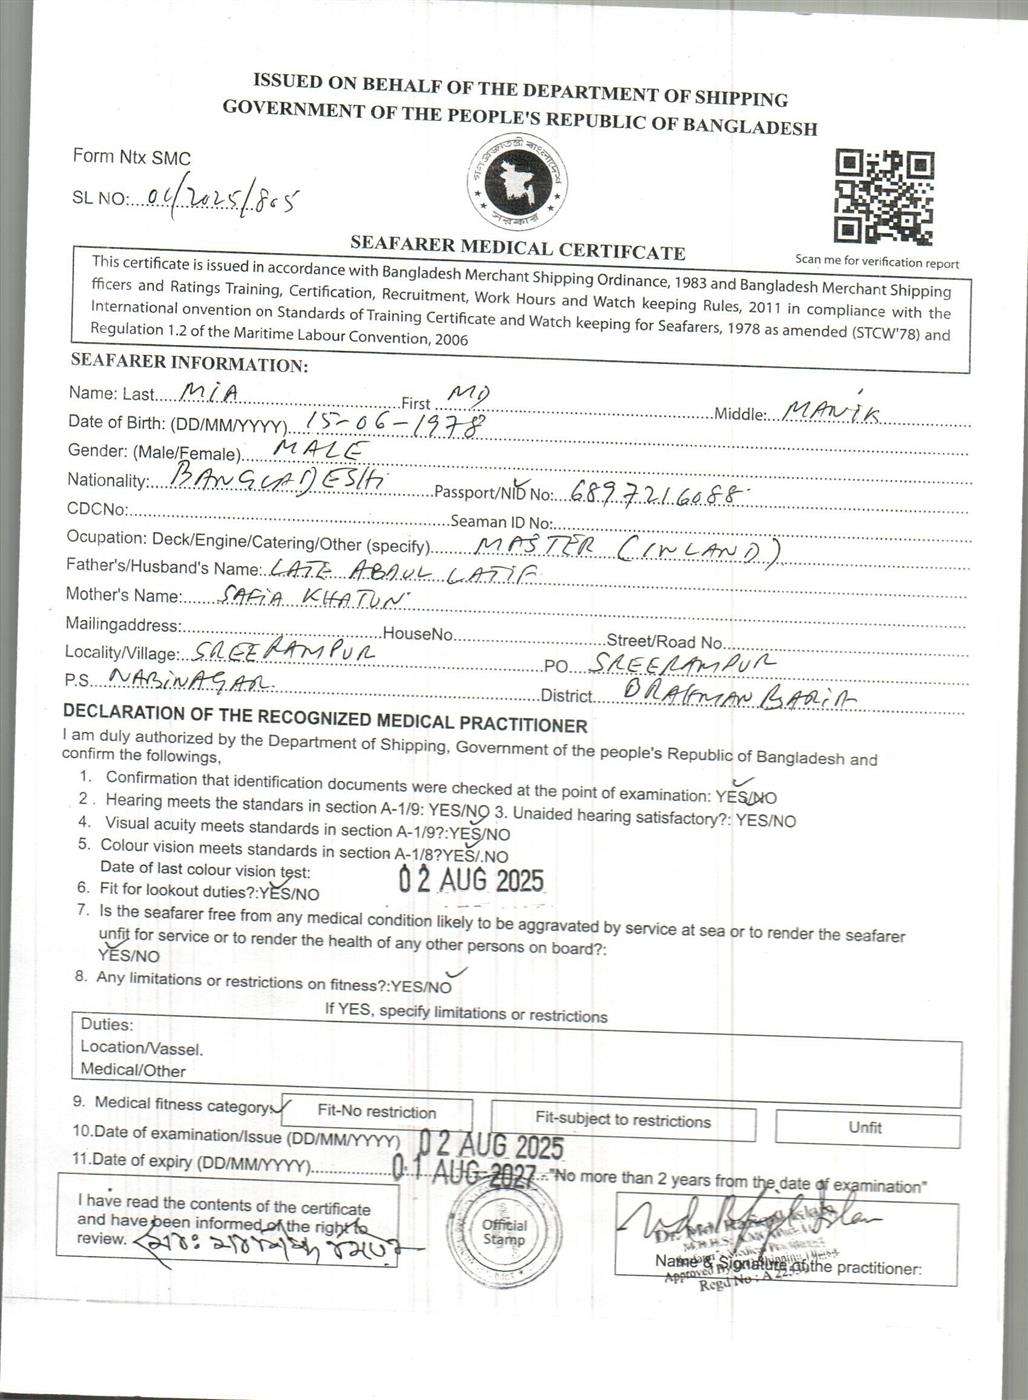 ISSUED ON BEHALF OF THE DEPARTMENT OF SHIPPING
GOVERNMENT OF THE PEOPLE'S REPUBLIC OF BANGLADESH
Form Ntx SMC
SL NO:.../2025/805
গণপ্রজাতন্ত্রী বাংলাদেশ সরকার
Scan me for verification report
SEAFARER MEDICAL CERTIFCATE
This certificate is issued in accordance with Bangladesh Merchant Shipping Ordinance, 1983 and Bangladesh Merchant Shipping
fficers and Ratings Training, Certification, Recruitment, Work Hours and Watch keeping Rules, 2011 in compliance with the
International onvention on Standards of Training Certificate and Watch keeping for Seafarers, 1978 as amended (STCW'78) and
Regulation 1.2 of the Maritime Labour Convention, 2006
SEAFARER INFORMATION:
Name: Last MIA First MD Middle: MANIK
Date of Birth: (DD/MM/YYYY) 15-06-1978
Gender: (Male/Female) MALE
Nationality: BANGLADESHI Passport/NID No: 6897216088
CDCNo: Seaman ID No:
Ocupation: Deck/Engine/Catering/Other (specify) MASTER (INLAND)
Father's/Husband's Name: LATE ABAUL LATIF
Mother's Name: SAFIA KHATUN
Mailingaddress: HouseNo Street/Road No
Locality/Village: SREERAMPUR PO SREERAMPUR
P.S. NABINAGAR District BRAHMANBARIA
DECLARATION OF THE RECOGNIZED MEDICAL PRACTITIONER
I am duly authorized by the Department of Shipping, Government of the people's Republic of Bangladesh and
confirm the followings,
1. Confirmation that identification documents were checked at the point of examination: YES/NO
2 . Hearing meets the standars in section A-1/9: YES/NO 3. Unaided hearing satisfactory?: YES/NO
4. Visual acuity meets standards in section A-1/9?:YES/NO
5. Colour vision meets standards in section A-1/8?YES/.NO
Date of last colour vision test: 02 AUG 2025
6. Fit for lookout duties?:YES/NO
7. Is the seafarer free from any medical condition likely to be aggravated by service at sea or to render the seafarer
unfit for service or to render the health of any other persons on board?:
YES/NO
8. Any limitations or restrictions on fitness?:YES/NO
If YES, specify limitations or restrictions
Duties:
Location/Vassel.
Medical/Other
9. Medical fitness category: Fit-No restriction Fit-subject to restrictions Unfit
10.Date of examination/Issue (DD/MM/YYYY) 02 AUG 2025
11.Date of expiry (DD/MM/YYYY) 01 AUG 2027 "No more than 2 years from the date of examination"
I have read the contents of the certificate
and have been informed of the right to
review.
Official
Stamp
Name & Signature of the practitioner:
Regd No : A